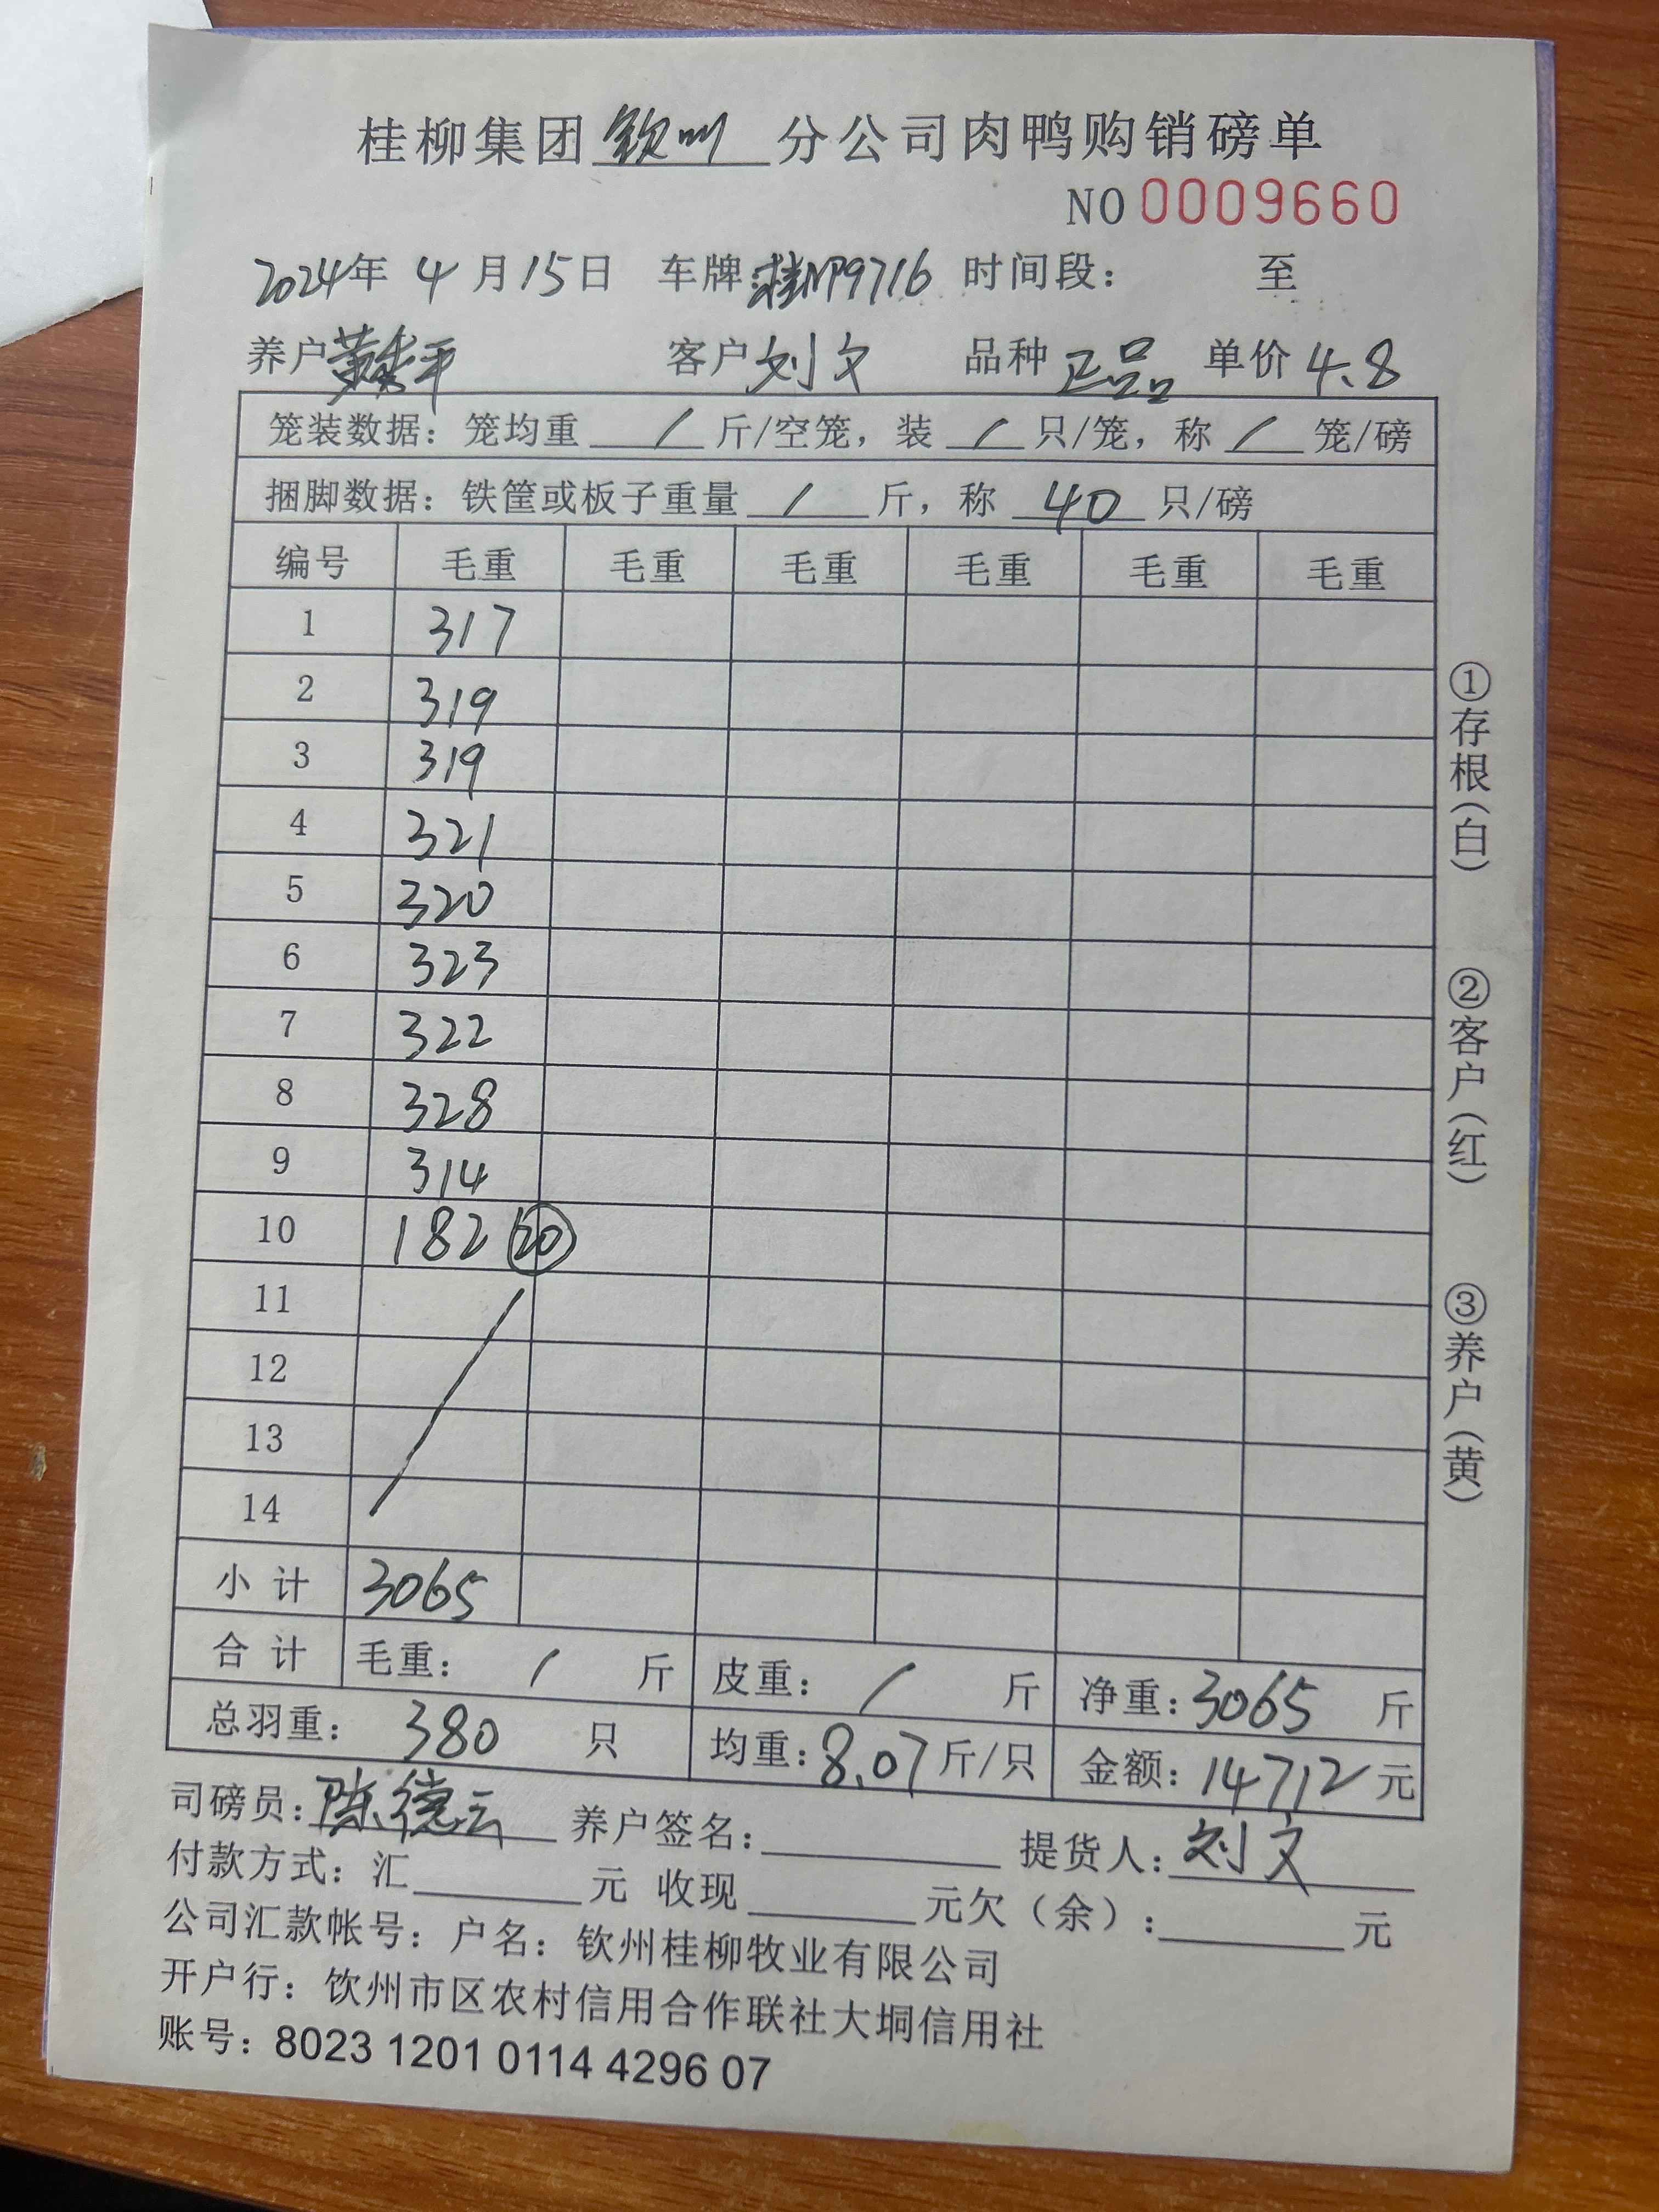 桂柳集团钦州分公司肉鸭购销磅单
NO 0009660
2024年 4月15日 车牌:桂NP9716 时间段: 至
养户 黄 平 客户 刘文 品种 正品 单价 4.8
笼装数据: 笼均重 / 斤/空笼, 装 / 只/笼, 称 / 笼/磅
捆脚数据: 铁筐或板子重量 / 斤, 称 40 只/磅
编号 毛重 毛重 毛重 毛重 毛重 毛重
1 317
2 319
3 319
4 321
5 320
6 323
7 322
8 328
9 314
10 182 ⑳
11
12
13
14
小计 3065
合计 毛重: / 斤 皮重: / 斤 净重:3065 斤
总羽重: 380 只 均重:8.07斤/只 金额:14712元
司磅员:陈德云 养户签名: 提货人:刘文
付款方式: 汇 元 收现 元欠(余): 元
公司汇款帐号: 户名: 钦州桂柳牧业有限公司
开户行: 饮州市区农村信用合作联社大垌信用社
账号: 8023 1201 0114 4296 07
①存根(白)
②客户(红)
③养户(黄)